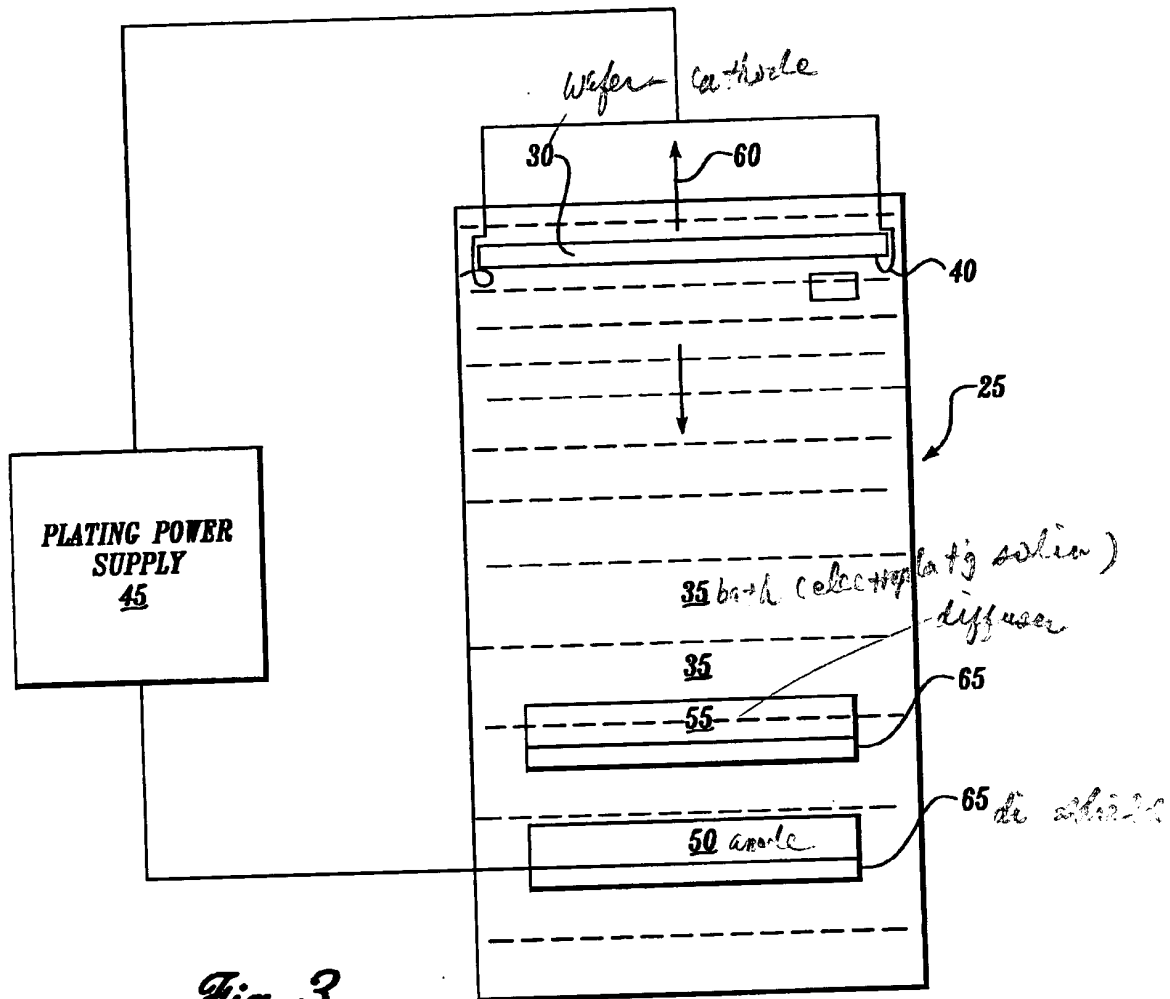 Wafer - cathode
30
60
40
25
PLATING POWER
SUPPLY
45
35 bath (electroplat'g
diffuser
35
55
65
65
50 anode
Fig. 3